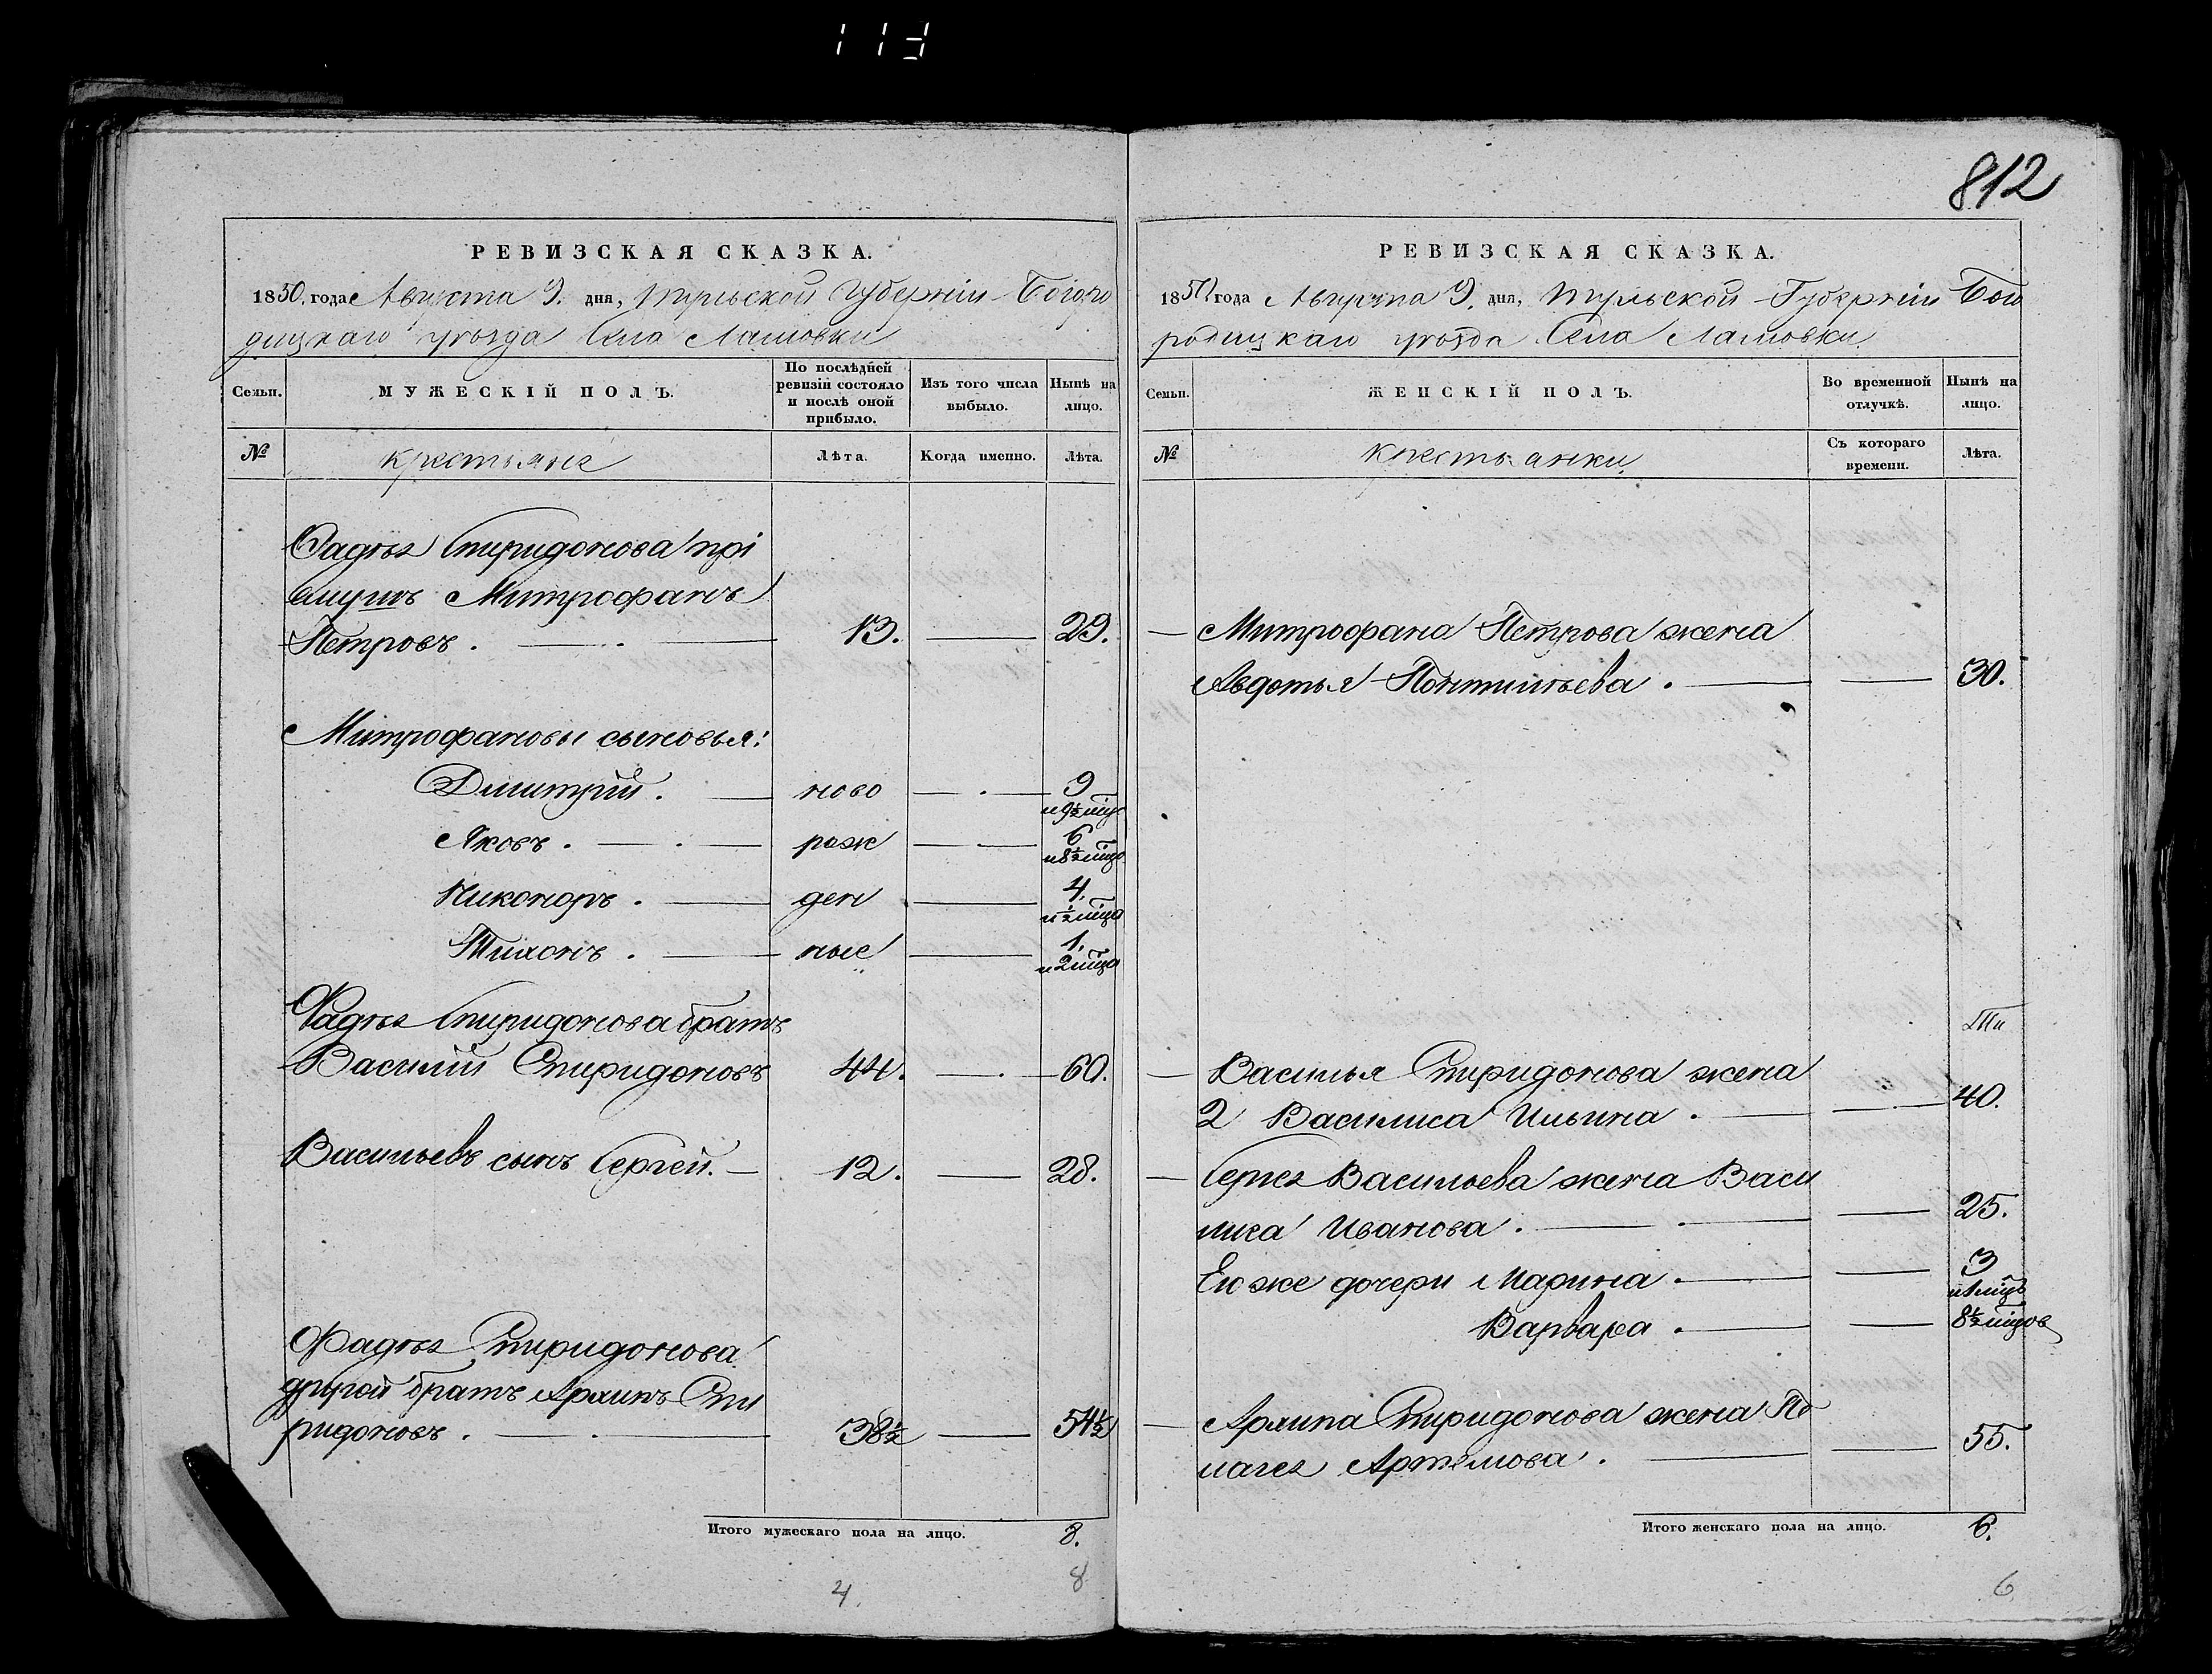 113
812
РЕВИЗСКАЯ СКАЗКА.
1850. года Августа 9. дня, Тульской Губернiи Богоро
дицкаго уѣзда Села Ламовки
Семьи.
МУЖЕСКІЙ ПОЛЪ.
По послѣдней ревизіи состояло и послѣ оной прибыло.
Изъ того числа выбыло.
Нынѣ на лицо.
№
крестьяне
Лѣта.
Когда именно.
Лѣта.
Фадѣя Спиридонова прі
емушъ Митрофанъ
Петровъ. 13. 29.
Митрофановы сыновья:
Дмитрій. ново 9 и 9½ мѣц
Яковъ. рож 6 и 8½ мѣцо
Никоноръ. ден 4. и ½ мѣца
Тихонъ. ные 1. и 2 мѣца
Фадѣя Спиридонова братъ
Василій Спиридоновъ 44. 60.
Васильевъ сынъ Сергей. 12. 28.
Фадѣя Спиридонова
другой братъ Архипъ Спи
ридоновъ. 38½ 54½
Итого мужескаго пола на лицо. 8.
8
4.
РЕВИЗСКАЯ СКАЗКА.
1850 года Августа 9. дня, Тульской Губернiи Бого
родицкаго уѣзда Села Ламовки
Семьи.
ЖЕНСКІЙ ПОЛЪ.
Во временной отлучкѣ.
Нынѣ на лицо.
№
крестьянки
Съ котораго времени.
Лѣта.
Митрофана Петрова жена
Авдотья 30.
Василья Спиридонова жена
2 Василиса Ильина. 40.
Сергея Васильева жена Васи
лиса Иванова. 25.
Его же дочери Марина. 3 и 1 мѣцъ
Варвара. 8½ мѣцов
Архипа Спиридонова жена Пе
лагея Артемова. 55.
Итого женскаго пола на лицо. 6.
6